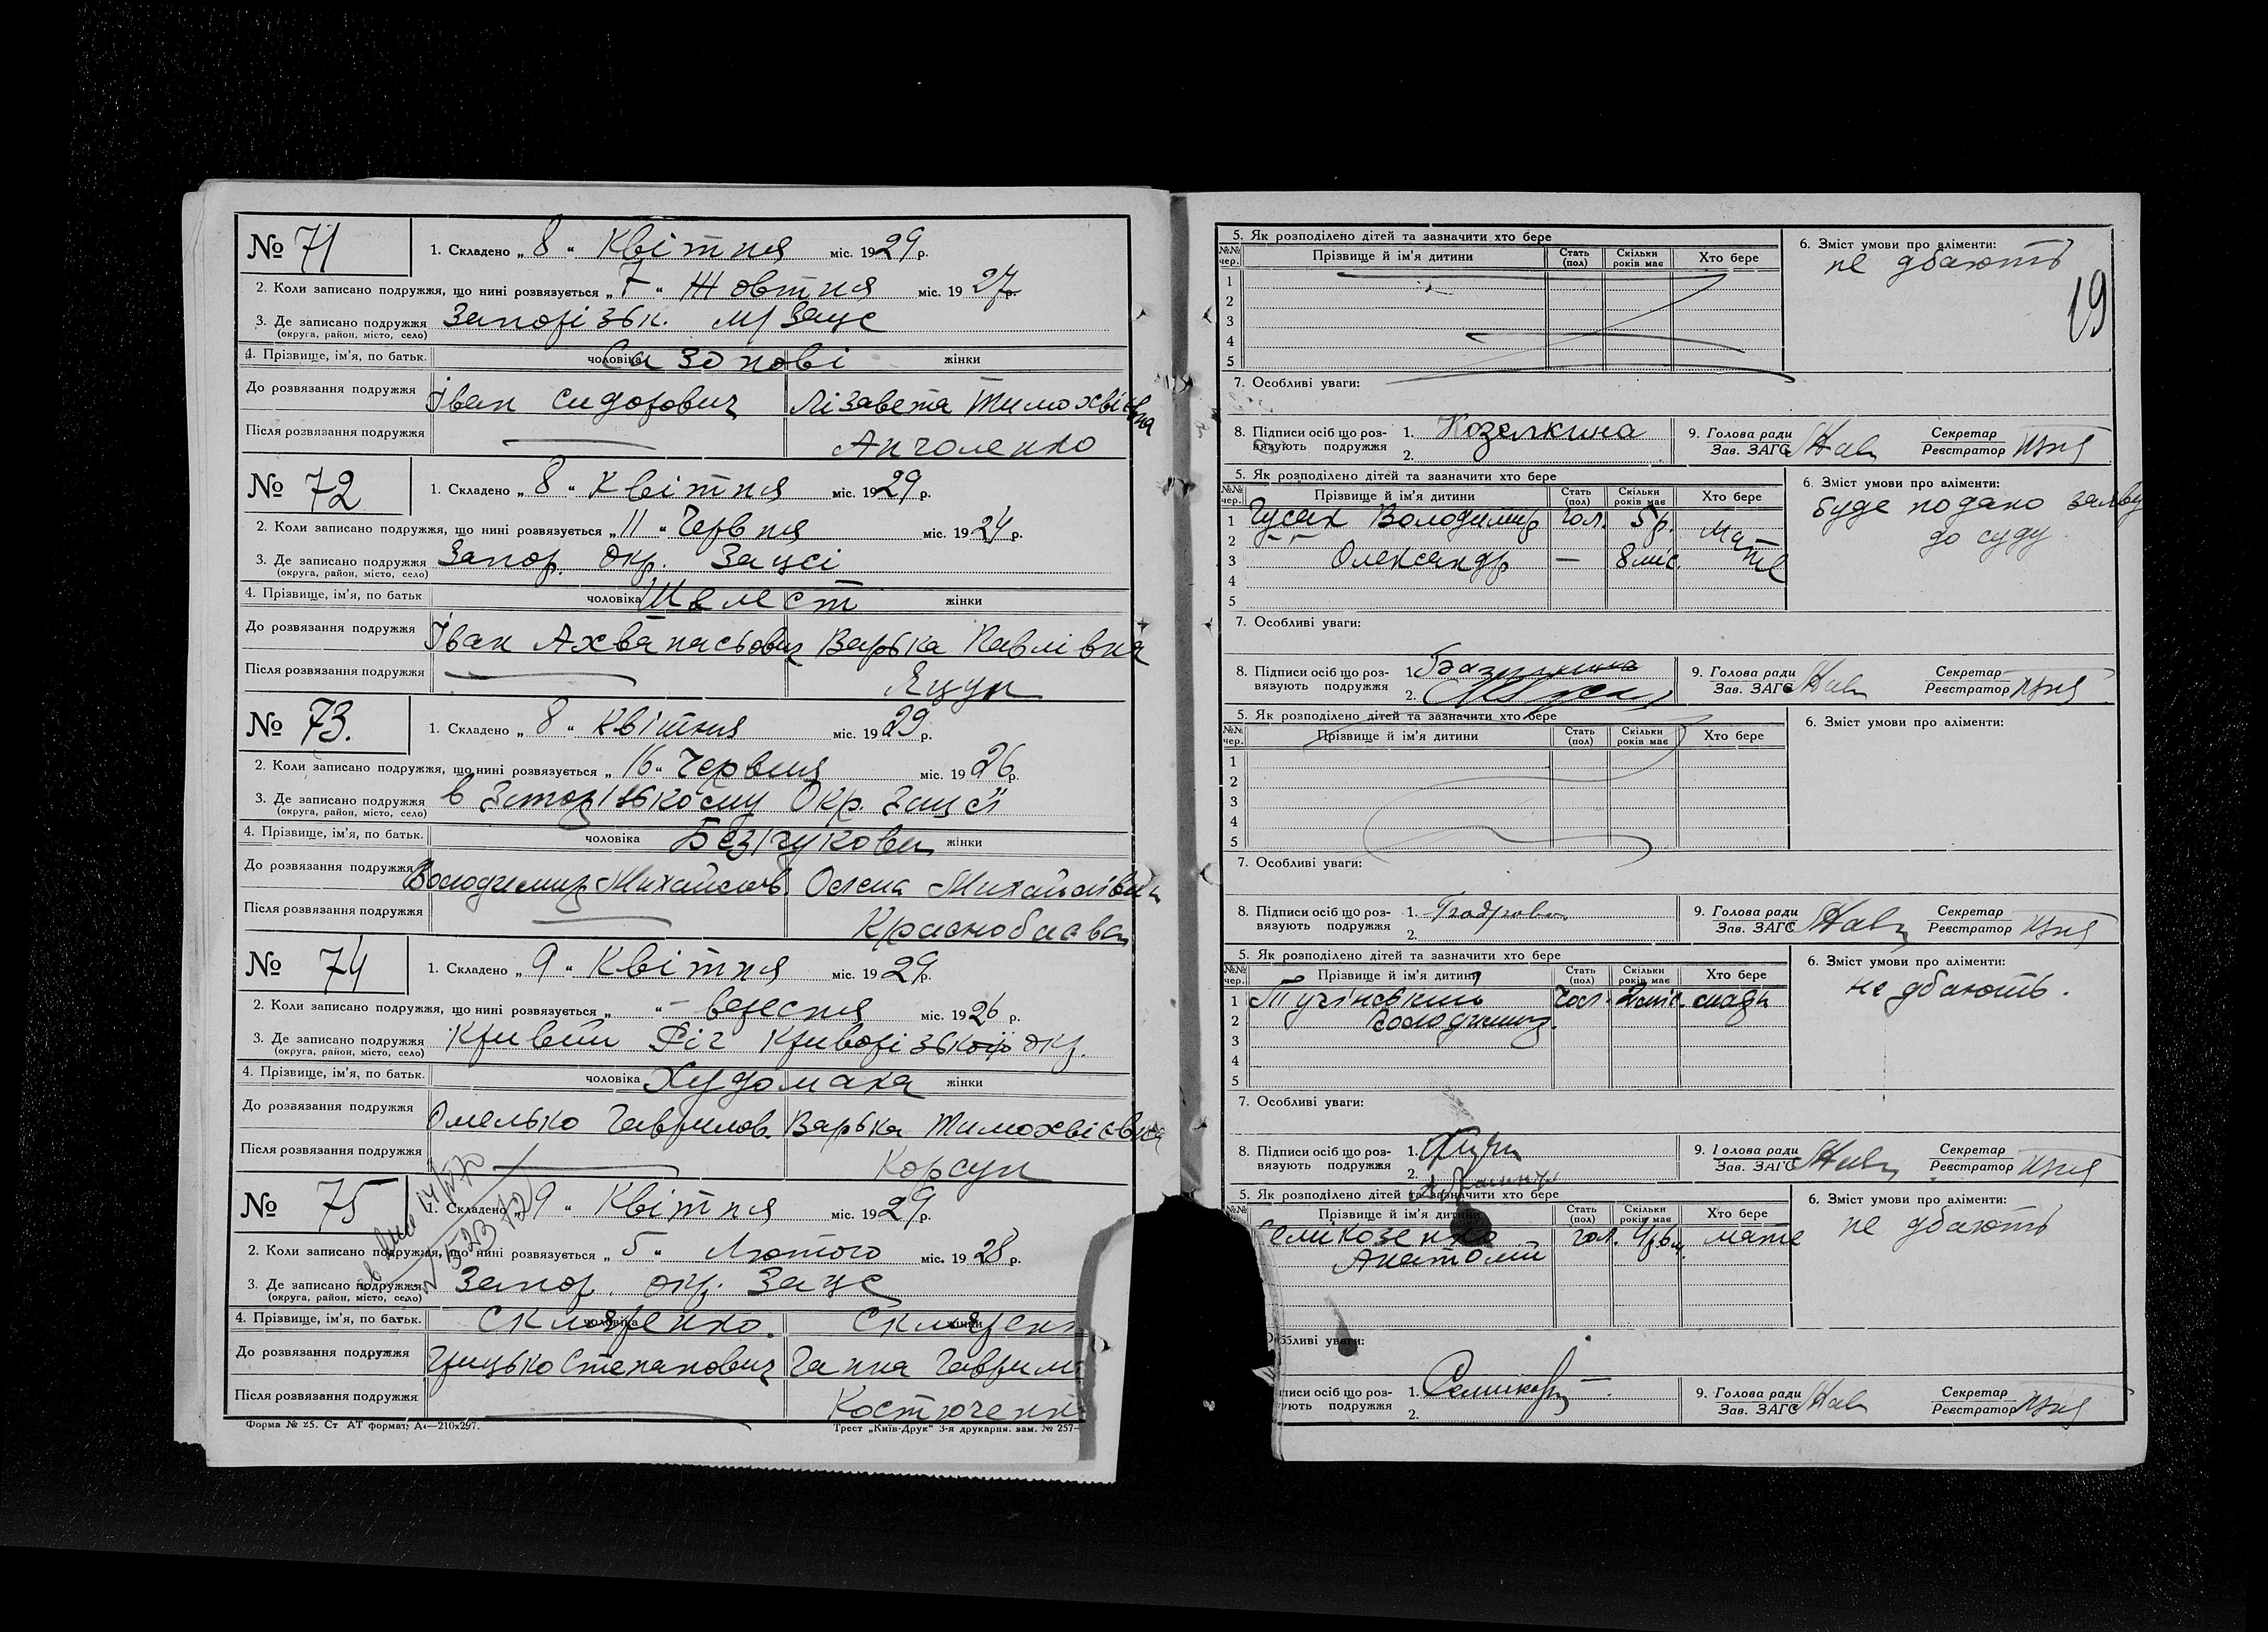 № 71
1. Складено „ 8 “ Квітня міс. 1929 р.
2. Коли записано подружжя, що нині розвязується „ 7 “ Жовтня міс. 1927 р.
3. Де записано подружжя Запорізьк. м/ Загс
(округа, район, місто, село)
4. Прізвище, ім'я, по батьк. чоловіка Сазонові жінки
До розвязання подружжя Іван Сидорович Лізавета Тимохвієвна
Після розвязання подружжя
№ 72
1. Складено „ 8 “ Квітня міс. 1929 р.
2. Коли записано подружжя, що нині розвязується „ 11 “ Червня міс. 1924 р.
3. Де записано подружжя Запор. окр. Загсі
(округа, район, місто, село)
4. Прізвище, ім'я, по батьк чоловіка Шелест жінки
До розвязання подружжя Іван Ахванасьович Варька Павлівна
Після розвязання подружжя Яцун
№ 73.
1. Складено „ 8 “ Квітня міс. 1929 р.
2. Коли записано подружжя, що нині розвязується „ 16 “ Червня міс. 1926 р.
3. Де записано подружжя в Запорізькому Окр. Загсі
(округа, район, місто, село)
4. Прізвище, ім'я, по батьк. чоловіка жінки
До розвязання подружжя Володимир Михайлов. Олена Михайлівна
Після розвязання подружжя Краснобаєва
№ 74
1. Складено „ 9 “ Квітня міс. 1929 р.
2. Коли записано подружжя, що нині розвязується „ - “ вересня міс. 1926 р.
3. Де записано подружжя Кривий Ріг Криворізької окр.
(округа, район, місто, село)
4. Прізвище, ім'я, по батьк. чоловіка Худомака жінки
До розвязання подружжя Омелько Гаврилов. Варька Тимохвієвна
Після розвязання подружжя Корсун
№ 75
1. Складено „ 9 “ Квітня міс. 1929 р.
2. Коли записано подружжя, що нині розвязується „ 5 “ Лютого міс. 1928 р.
3. Де записано подружжя Запор. окр. Загс
(округа, район, місто, село)
4. Прізвище, ім'я, по батьк. чоловіка Скляренко. жінки Склярен
До розвязання подружжя Грицько Степанович Ганна Гаврил
Після розвязання подружжя Костючен
Форма № 25. Ст АТ формат: А4—210х297. Трест „Київ-Друк“ 3-я друкарня. зам. № 257—
19
5. Як розподілено дітей та зазначити хто бере
6. Зміст умови про аліменти:
не дбають
№№ чер. Прізвище й ім'я дитини Стать (пол) Скільки років має Хто бере
1
2
3
4
5
7. Особливі уваги:
8. Підписи осіб що роз- 1. Козелкина 9. Голова ради Секретар
вязують подружжя 2. Зав. ЗАГС Реєстратор
5. Як розподілено дітей та зазначити хто бере
6. Зміст умови про аліменти:
буде подано заяву
до суду
№№ чер. Прізвище й ім'я дитини Стать (пол) Скільки років має Хто бере
1 Гусак Володимир чол. 5 р. Мати
2
3 Олександр — 8 міс.
4
5
7. Особливі уваги:
8. Підписи осіб що роз- 1. 9. Голова ради Секретар
вязують подружжя 2. Зав. ЗАГС Реєстратор
5. Як розподілено дітей та зазначити хто бере
6. Зміст умови про аліменти:
№№ чер. Прізвище й ім'я дитини Стать (пол) Скільки років має Хто бере
1
2
3
4
5
7. Особливі уваги:
8. Підписи осіб що роз- 1. 9. Голова ради Секретар
вязують подружжя 2. Зав. ЗАГС Реєстратор
5. Як розподілено дітей та зазначити хто бере
6. Зміст умови про аліменти:
не дбають.
№№ чер. Прізвище й ім'я дитини Стать (пол) Скільки років має Хто бере
1 чол.
2 Володимир.
3
4
5
7. Особливі уваги:
8. Підписи осіб що роз- 1. 9. Голова ради Секретар
вязують подружжя 2. Зав. ЗАГС Реєстратор
5. Як розподілено дітей та зазначити хто бере
6. Зміст умови про аліменти:
не дбають
Прізвище й ім'я дитини Стать (пол) Скільки років має Хто бере
еликозенко чол. мати
Анатолій
обливі уваги:
писи осіб що роз- 1. 9. Голова ради Секретар
ють подружжя 2. Зав. ЗАГС Реєстратор